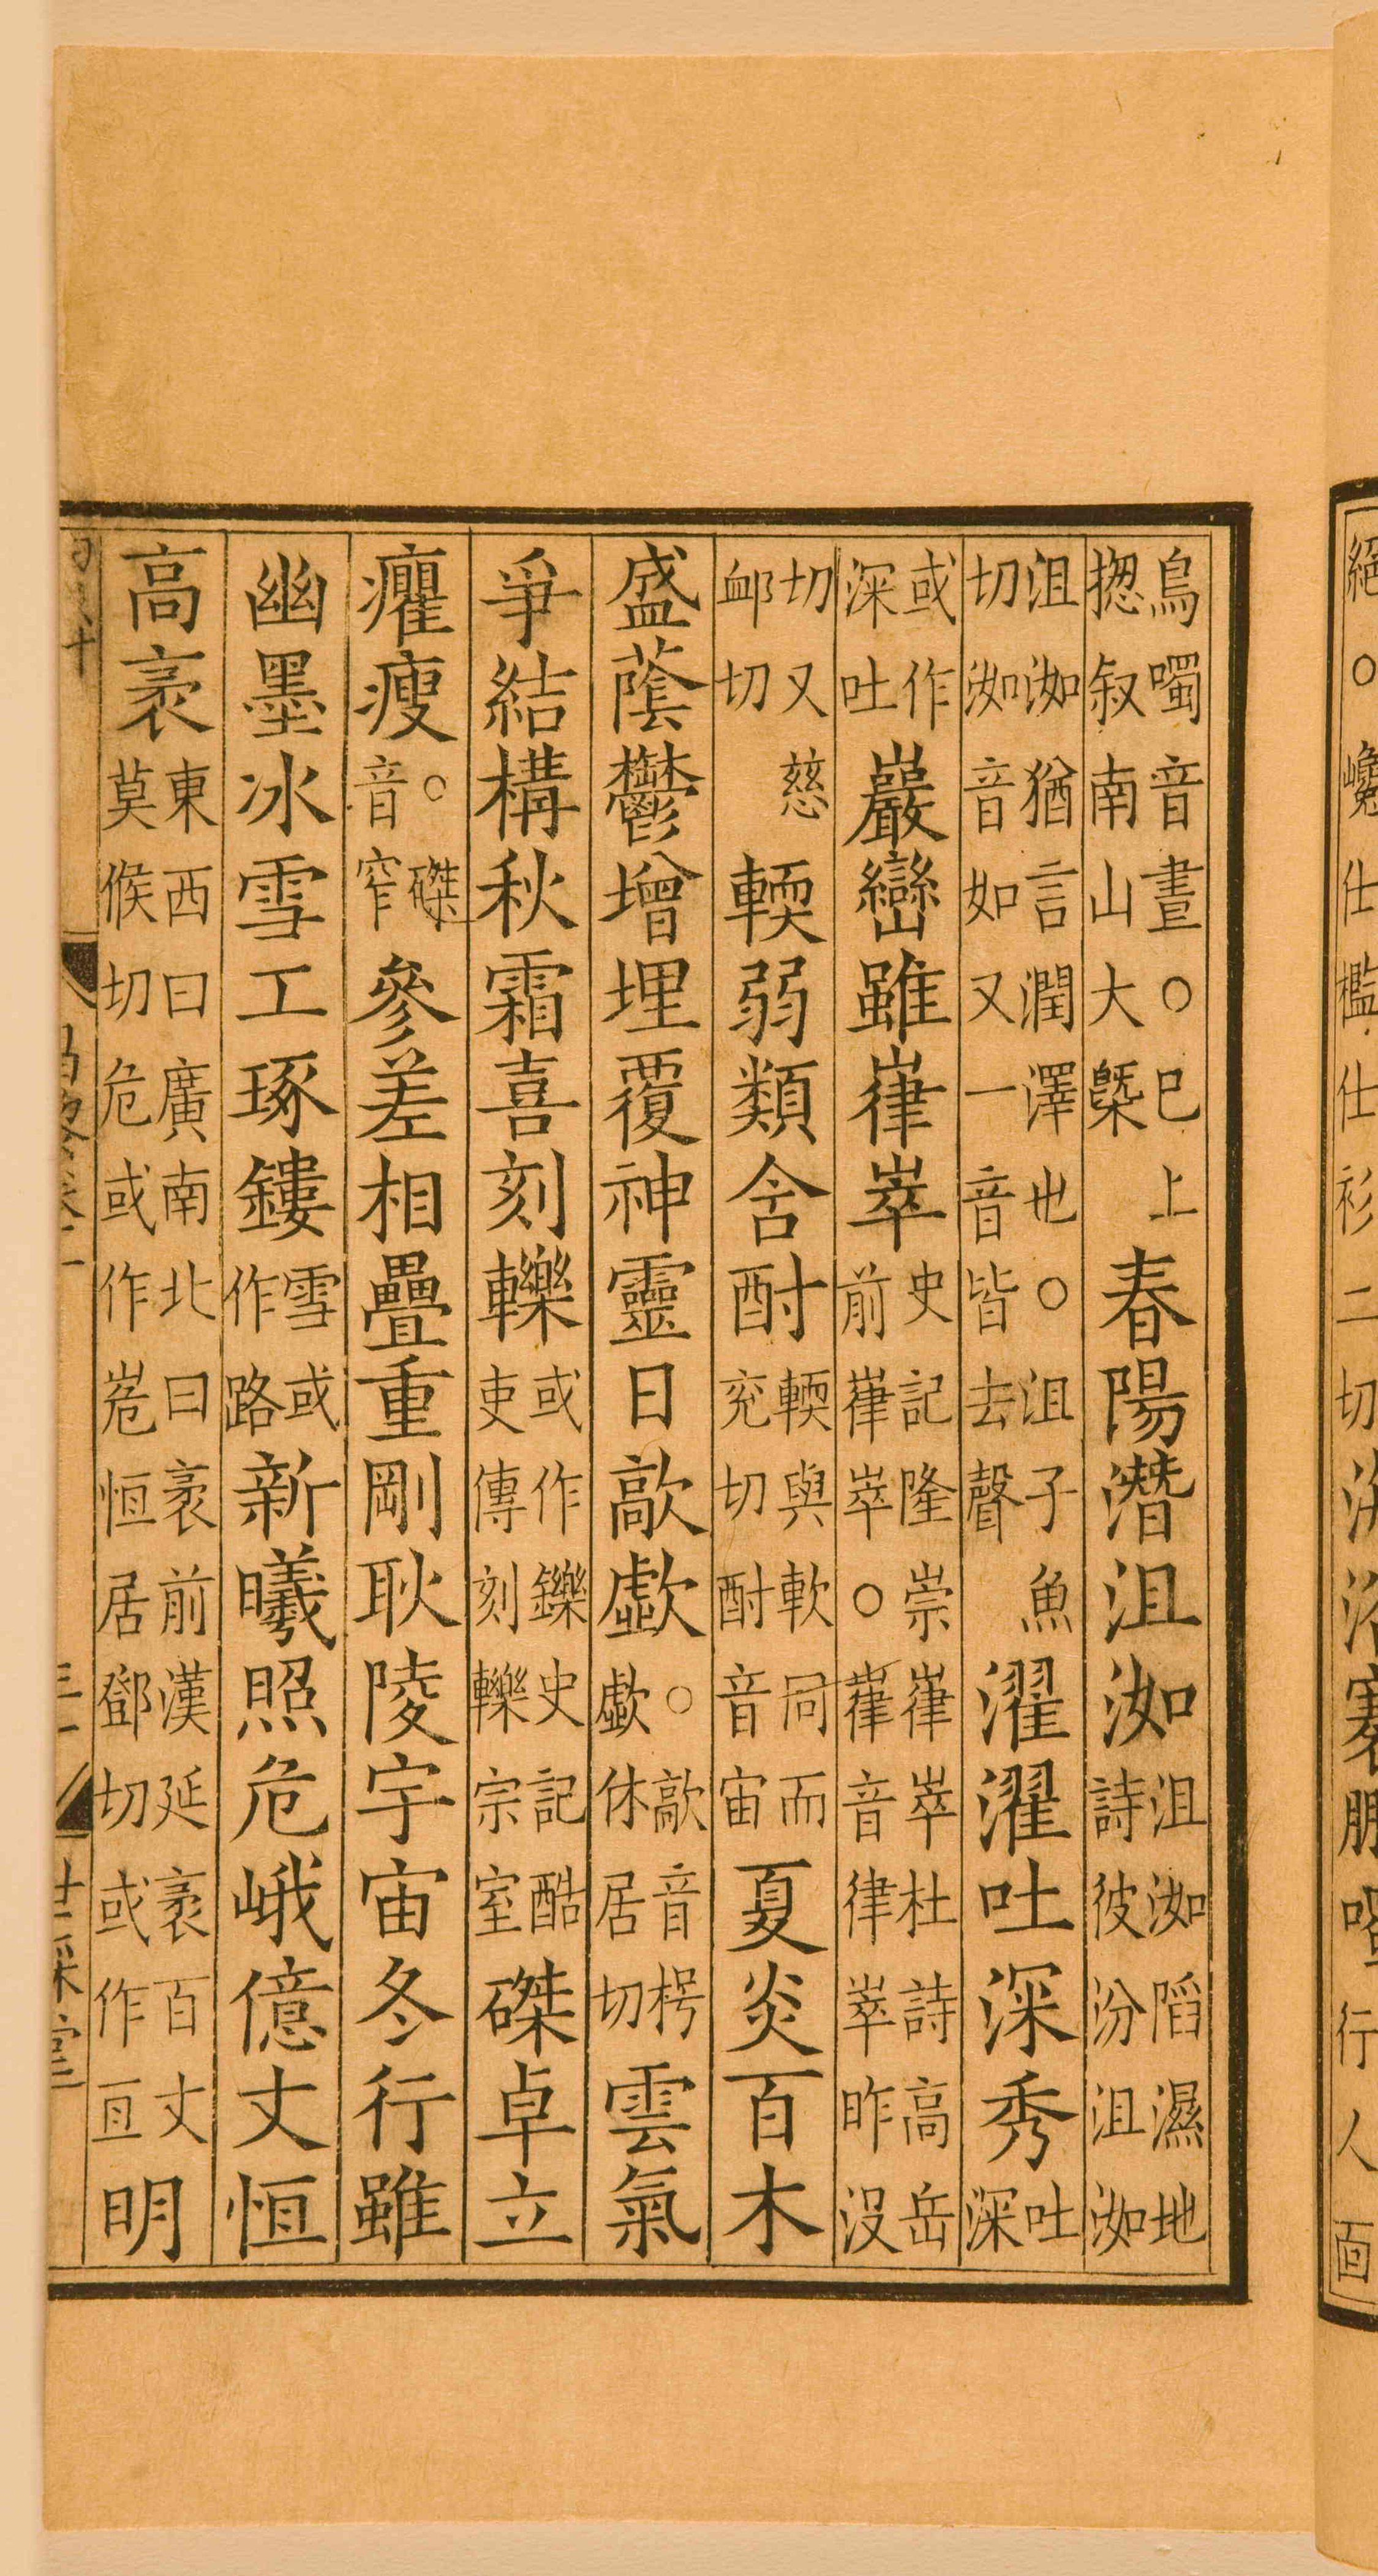 鳥噣音晝○已上
揔叙南山大槩
春陽潛沮洳
沮洳陷濕地
詩彼汾沮洳
沮洳猶言潤澤也○沮子魚
切洳音如又一音皆去聲
濯濯吐深秀
吐
深
或作
深吐
巖巒雖嵂崒
史記隆崇嵂崒杜詩高岳
前嵂崒○嵂音律崒昨沒
切又慈
卹切
輭弱類含酎
輭與軟同而
兖切酎音宙
夏炎百木
盛蔭鬱增埋覆神靈日歊歔
○歊音枵
歔休居切
雲氣
爭結構秋霜喜刻轢
或作鑠史記酷
吏傳刻轢宗室
磔卓立
癯瘦
○磔
音窄
參差相疊重剛耿陵宇宙冬行雖
幽墨冰雪工琢鏤
雪或
作路
新曦照危峨億丈恒
高袤
東西曰廣南北曰袤前漢延袤百丈
莫候切危或作峞恒居鄧切或作亙
明
絕○巉仕檻仕衫二切
行人面